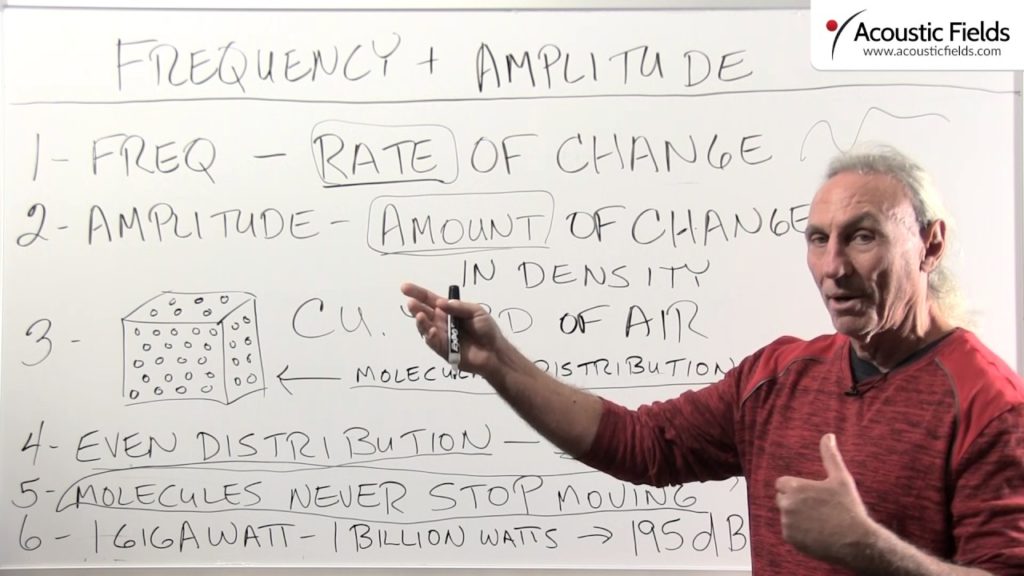 Acoustic Fields
www.acousticfields.com
FREQUENCY + AMPLITUDE
1- FREQ - RATE OF CHANGE
2- AMPLITUDE - AMOUNT OF CHANGE
IN DENSITY
3- CU. OF AIR
DISTRIBUTION
4- EVEN DISTRIBUTION -
5- MOLECULES NEVER STOP MOVING
6- 1 GIGAWATT - 1 BILLION WATTS → 195dB
EXPO